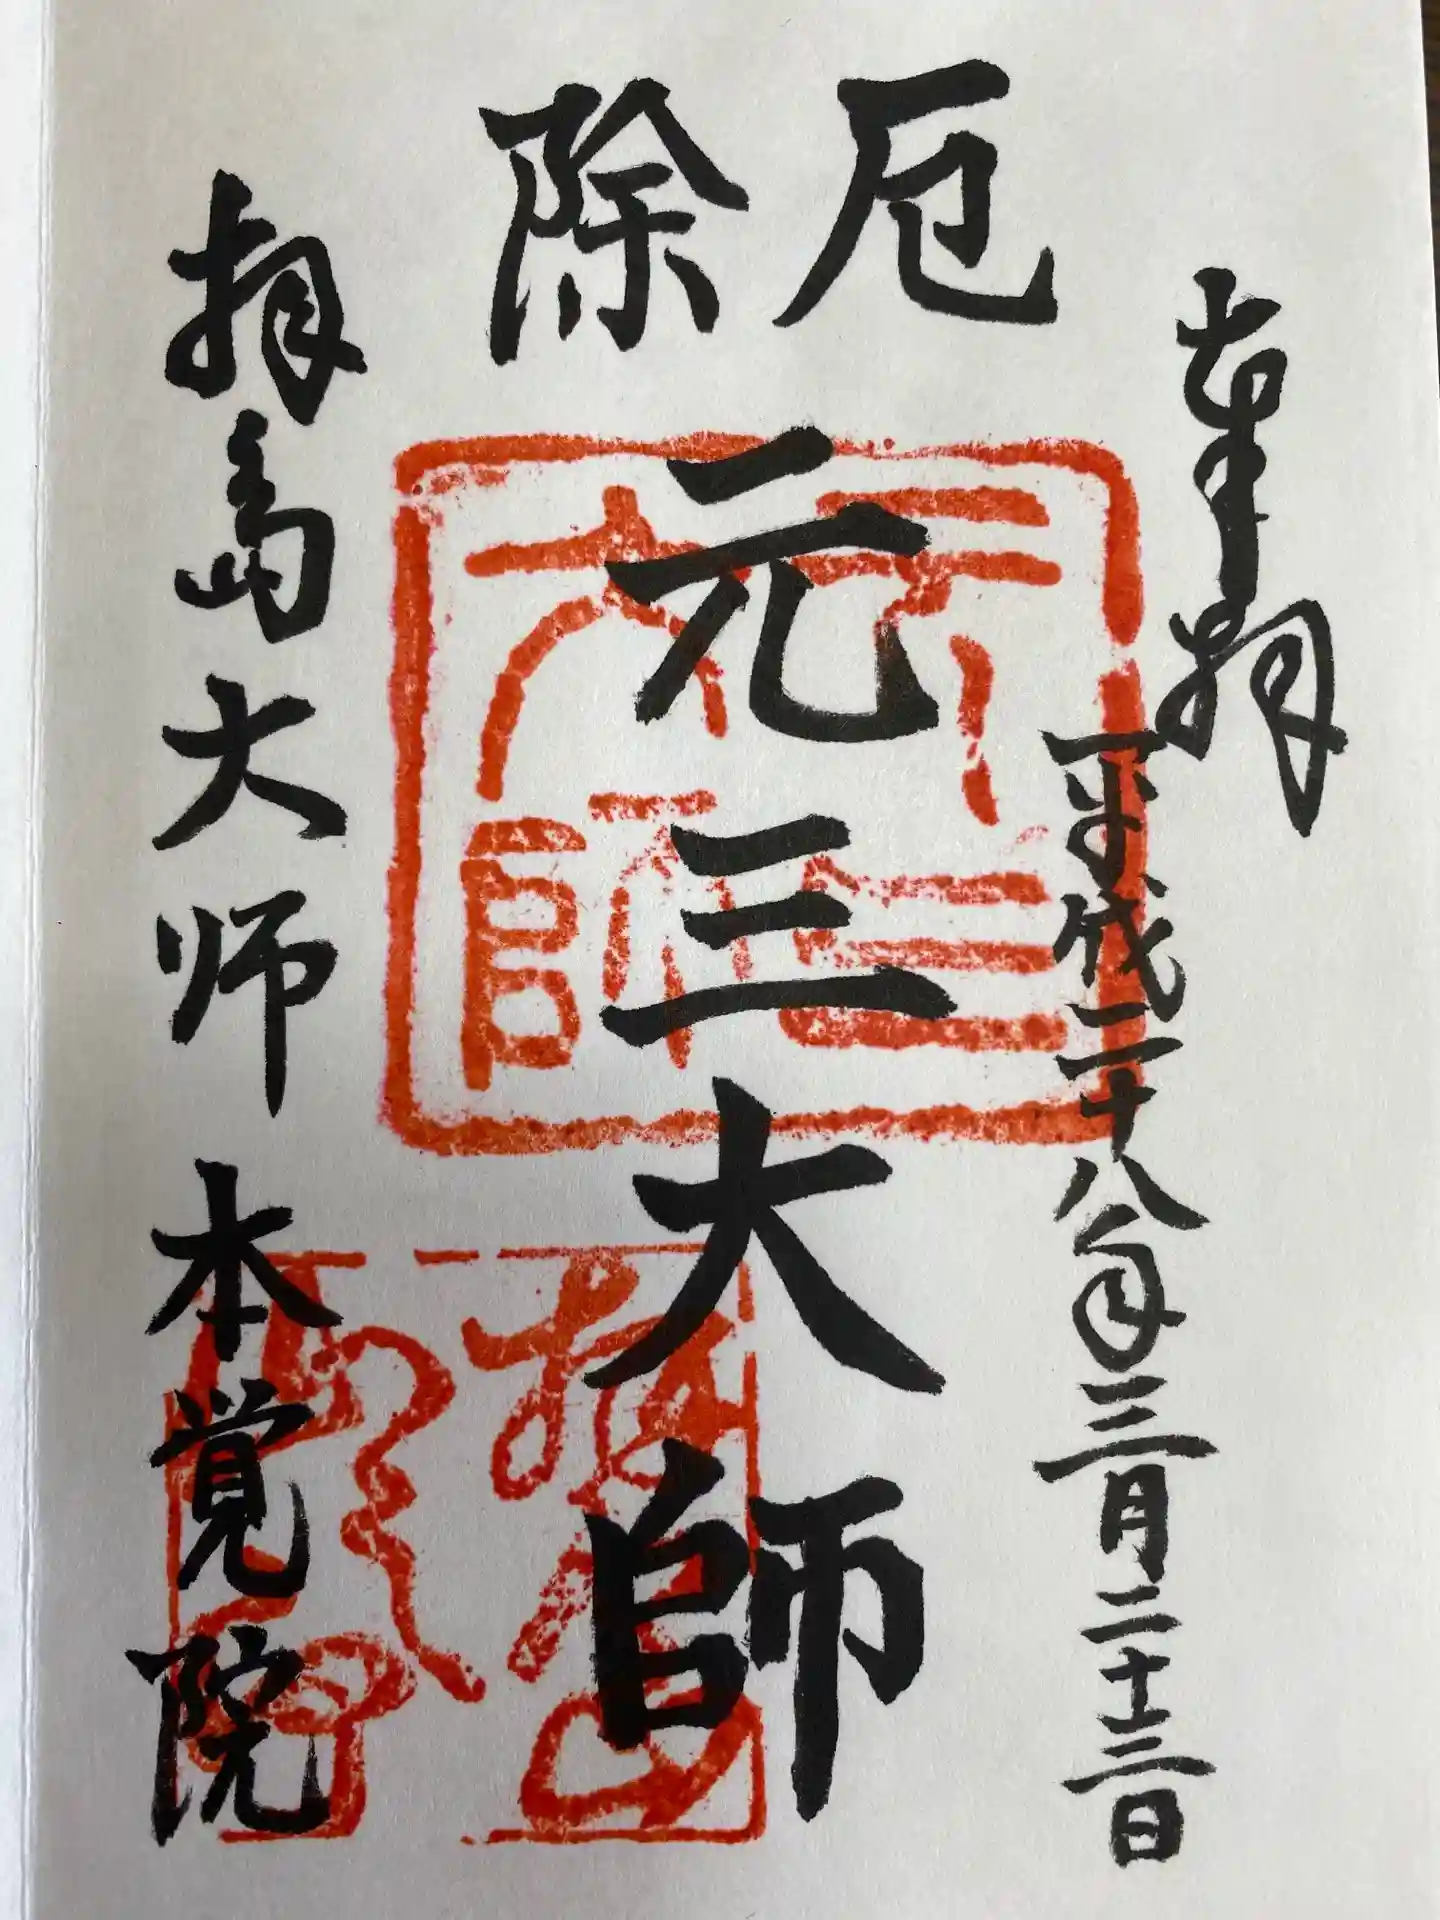 奉拝
平成二十八年三月二十三日
厄除
元三大師
拝島大師 本覚院
元三
大師